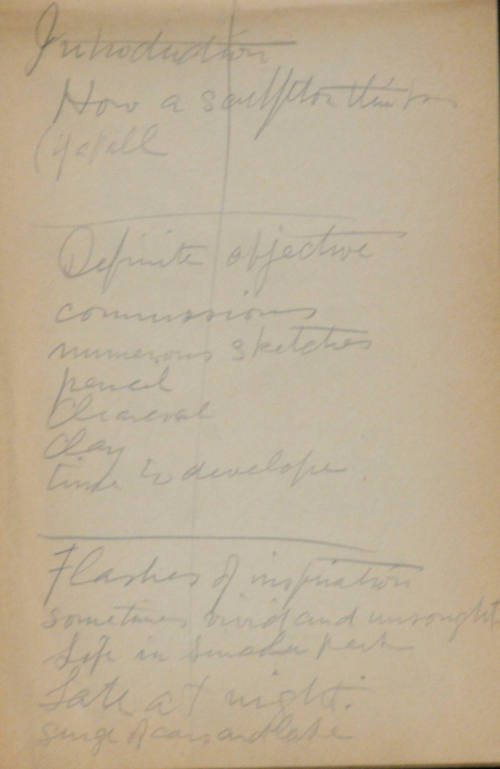 Introduction
How a sculptor thinks
(if at all
Definite objective
commissions
numerous sketches
pencil
Charcoal
Clay
time to develope
Flashes of inspiration
sometimes vivid and unsought
in park
Late at night.
surge of cars and lake